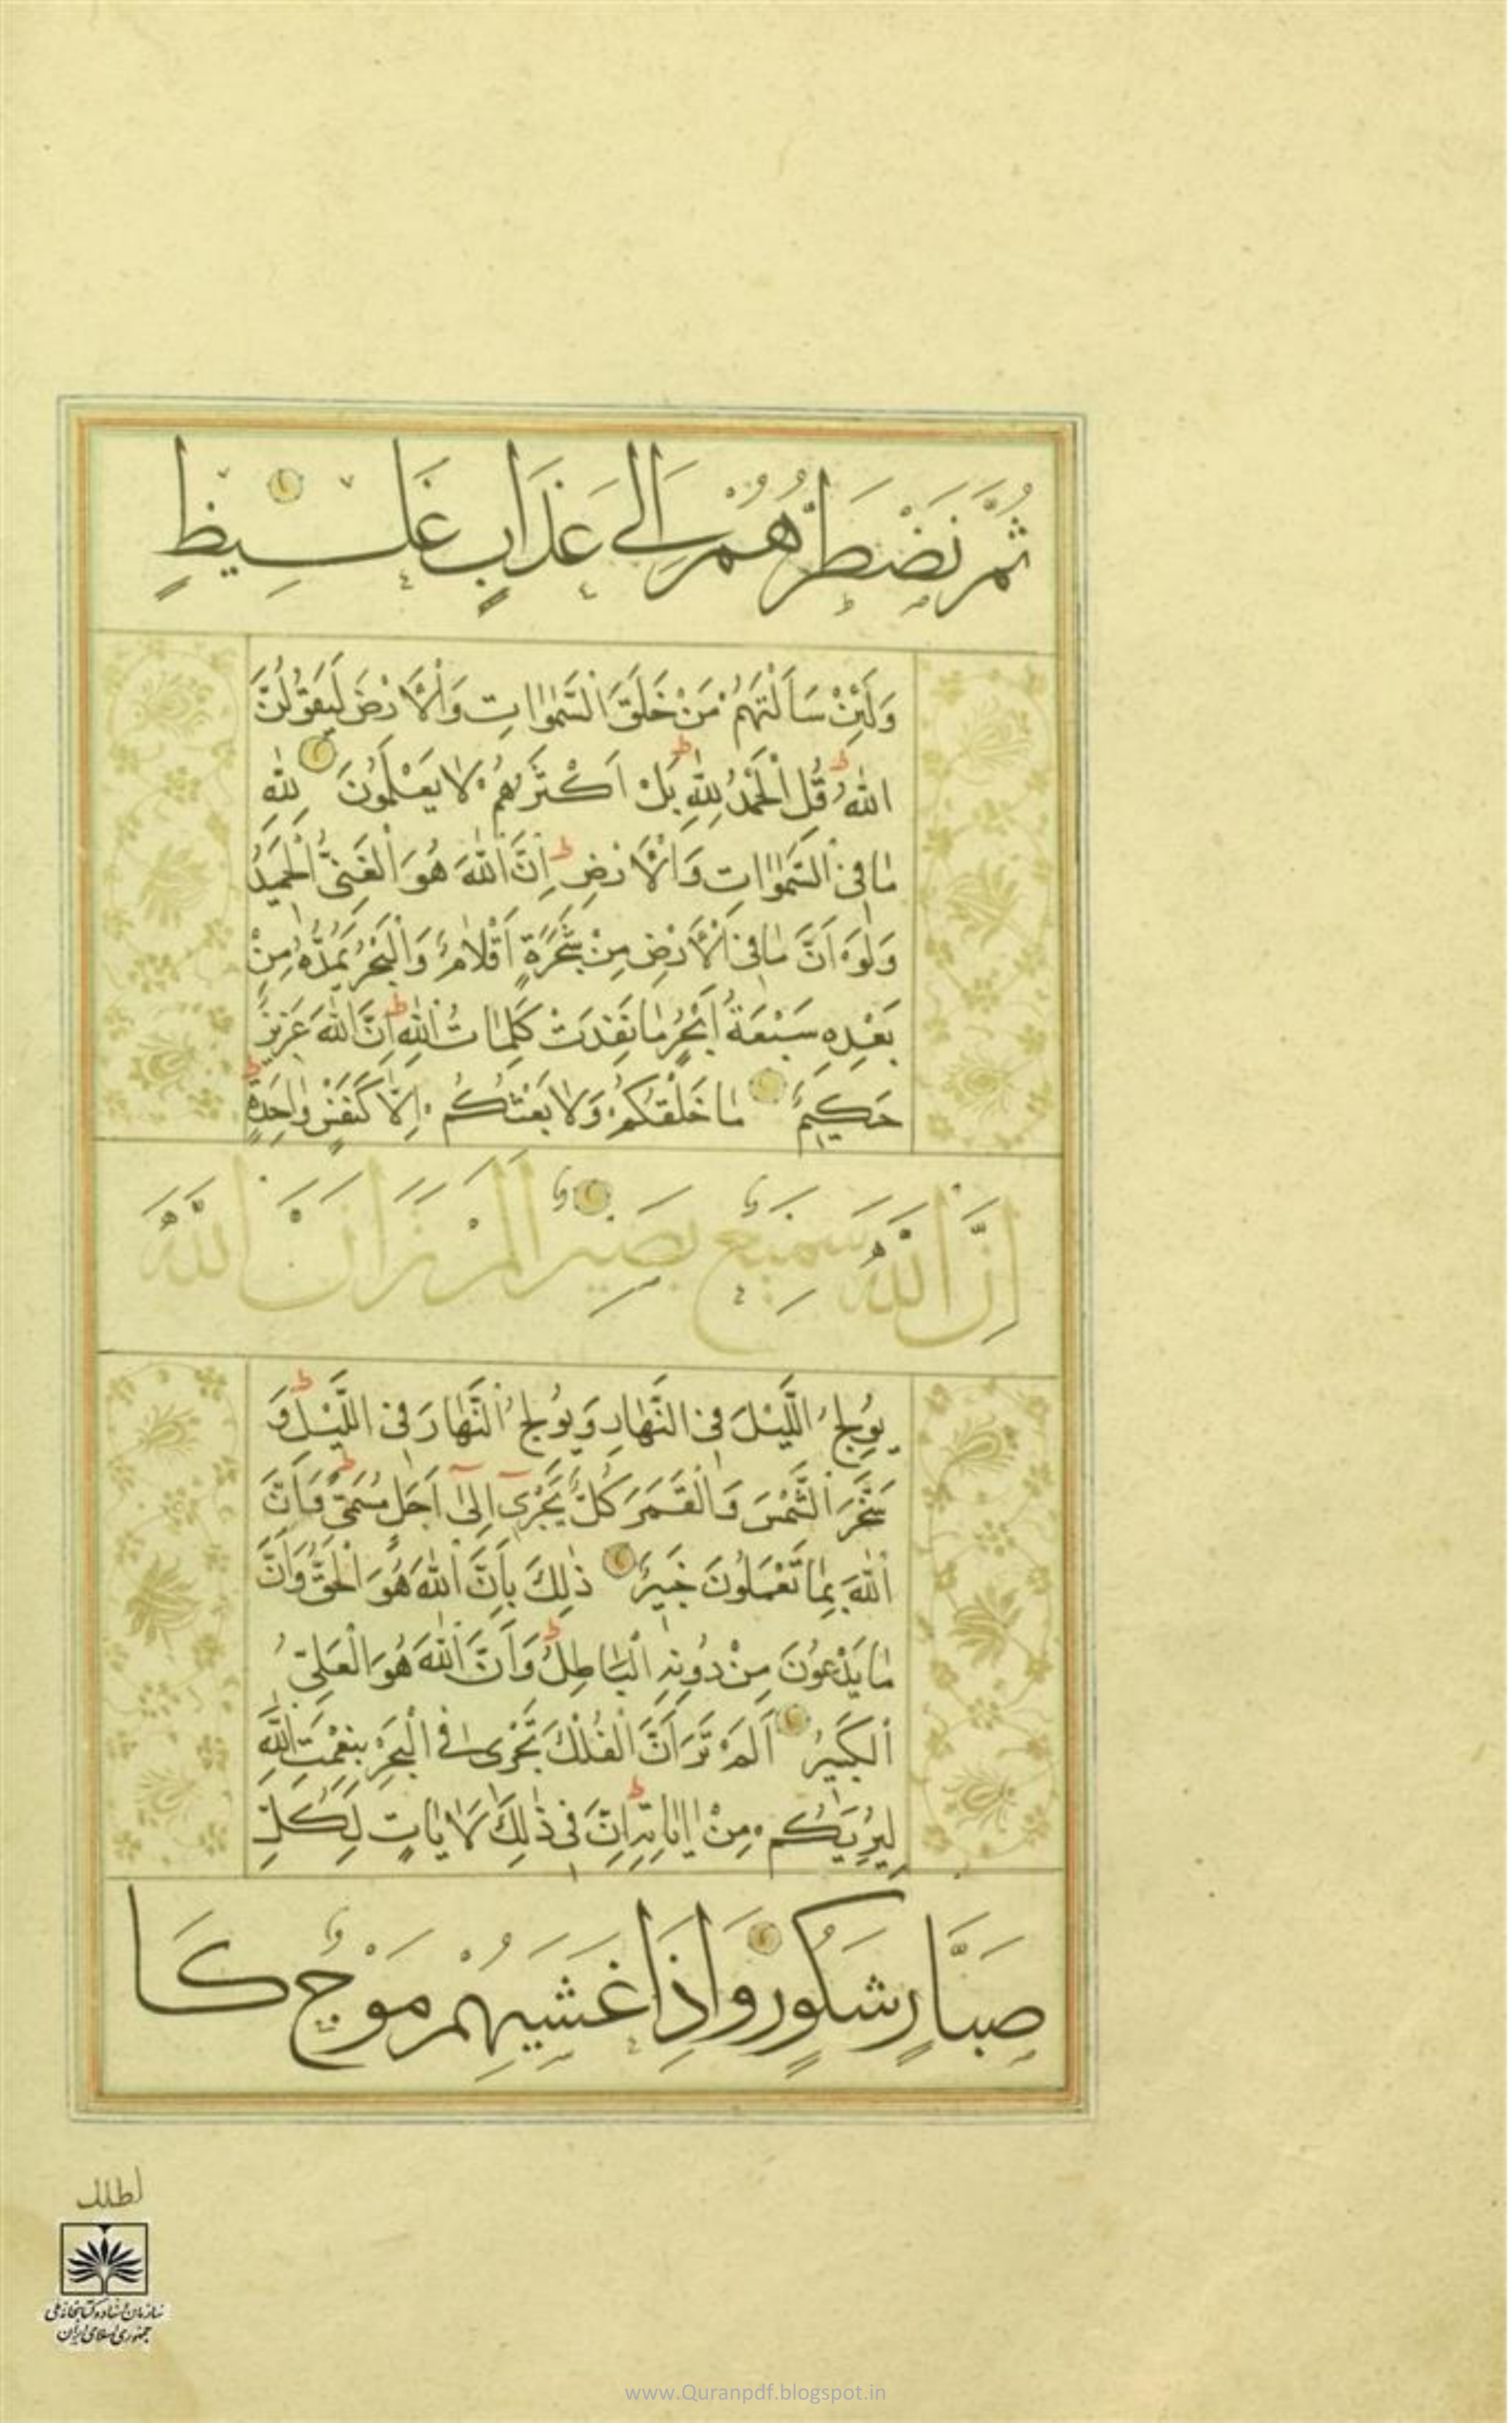 ثُمَّ نَضْطَرُّهُمْ اِلٰى عَذَابٍ غَلِيظٍ
وَلَئِنْ سَاَلْتَهُمْ مَنْ خَلَقَ السَّمٰوَاتِ وَالْاَرْضَ لَيَقُولُنَّ
اللّٰهُ قُلِ الْحَمْدُ لِلّٰهِ بَلْ اَكْثَرُهُمْ لَا يَعْلَمُونَ لِلّٰهِ
مَا فِى السَّمٰوَاتِ وَالْاَرْضِ اِنَّ اللّٰهَ هُوَ الْغَنِىُّ الْحَمِيدُ
وَلَوْ اَنَّ مَا فِى الْاَرْضِ مِنْ شَجَرَةٍ اَقْلَامٌ وَالْبَحْرُ يَمُدُّهُ مِنْ
بَعْدِهِ سَبْعَةُ اَبْحُرٍ مَا نَفِدَتْ كَلِمَاتُ اللّٰهِ اِنَّ اللّٰهَ عَزِيزٌ
حَكِيمٌ مَا خَلْقُكُمْ وَلَا بَعْثُكُمْ اِلَّا كَنَفْسٍ وَاحِدَةٍ
اِنَّ اللّٰهَ سَمِيعٌ بَصِيرٌ اَلَمْ تَرَ اَنَّ اللّٰهَ
يُولِجُ اللَّيْلَ فِى النَّهَارِ وَيُولِجُ النَّهَارَ فِى اللَّيْلِ وَ
سَخَّرَ الشَّمْسَ وَالْقَمَرَ كُلٌّ يَجْرِىٓ اِلٰىٓ اَجَلٍ مُسَمًّى وَاَنَّ
اللّٰهَ بِمَا تَعْمَلُونَ خَبِيرٌ ذٰلِكَ بِاَنَّ اللّٰهَ هُوَ الْحَقُّ وَاَنَّ
مَا يَدْعُونَ مِنْ دُونِهِ الْبَاطِلُ وَاَنَّ اللّٰهَ هُوَ الْعَلِىُّ
الْكَبِيرُ اَلَمْ تَرَ اَنَّ الْفُلْكَ تَجْرِى فِى الْبَحْرِ بِنِعْمَتِ اللّٰهِ
لِيُرِيَكُمْ مِنْ اٰيَاتِهِ اِنَّ فِى ذٰلِكَ لَاٰيَاتٍ لِكُلِّ
صَبَّارٍ شَكُورٍ وَاِذَا غَشِيَهُمْ مَوْجٌ كَا
لظلل
سازمان اسناد و کتابخانه ملی
جمهوری اسلامی ایران
www.Quranpdf.blogspot.in